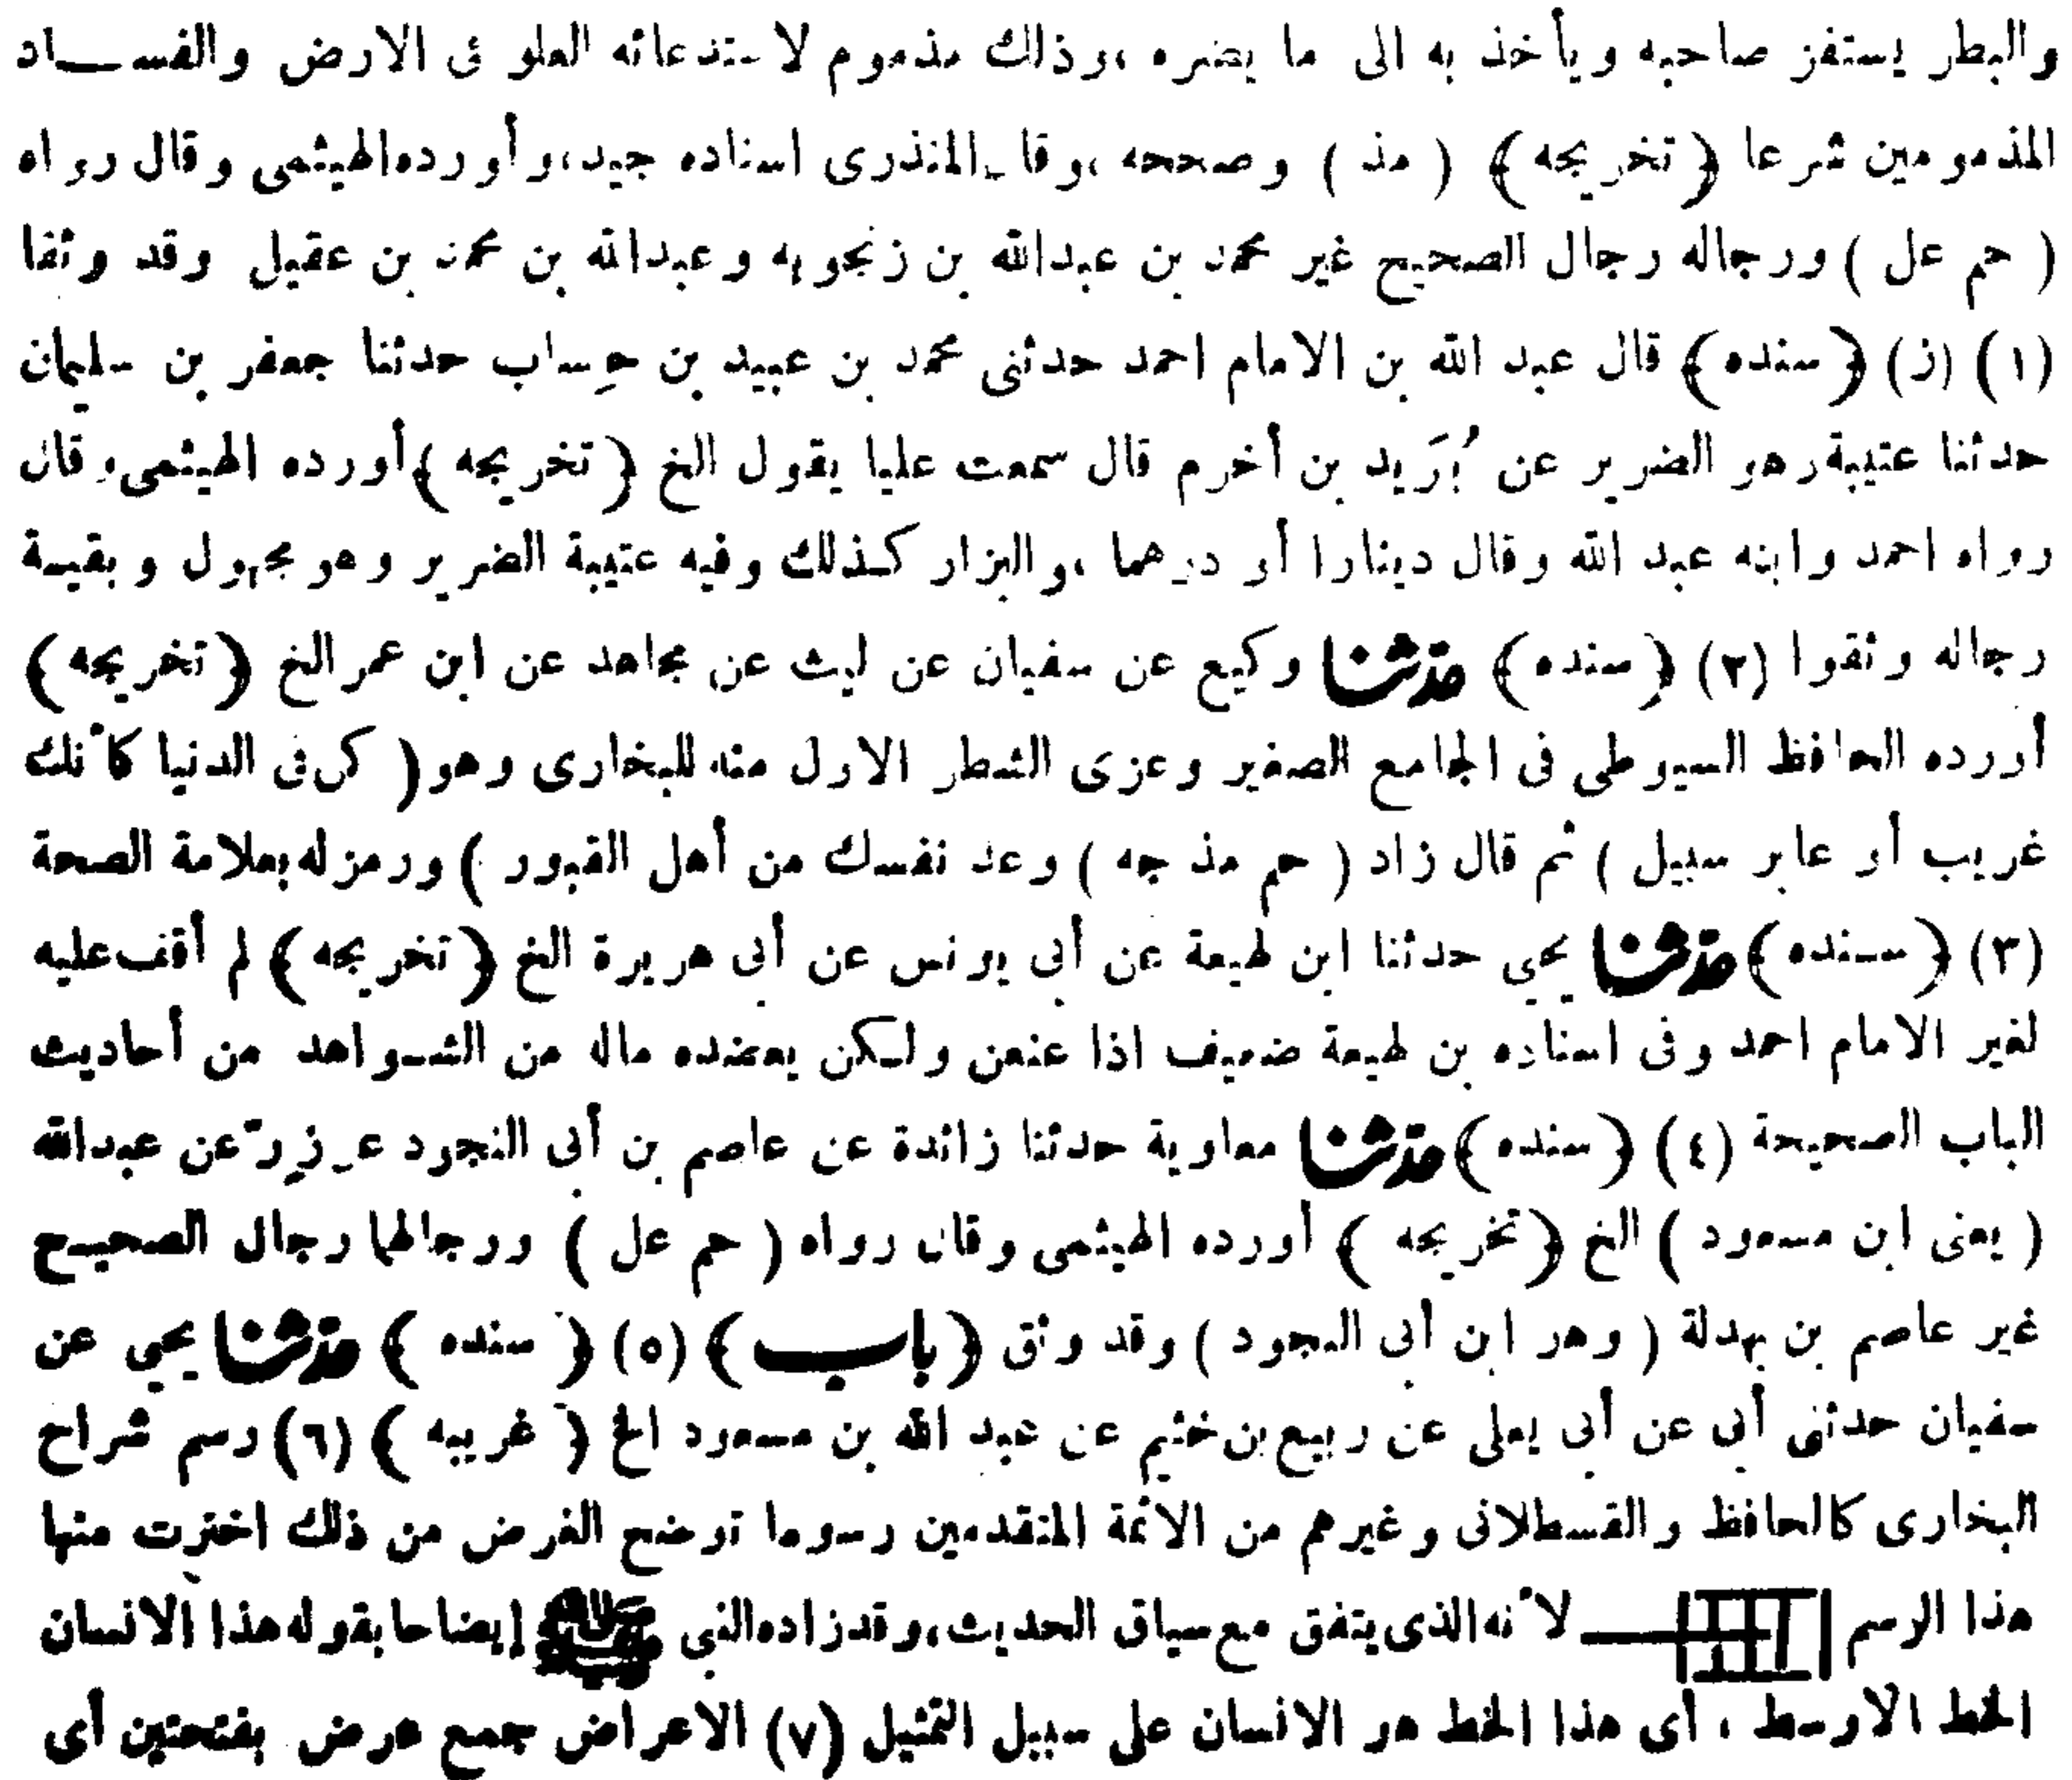 والبطر يستفز صاحبه ويأخذ به الى ما يضره ،وذلك مذموم لاستدعائه العلو فى الارض والفســاد
المذمومين شرعا ﴿ تخريجه ﴾ ( مذ ) وصححه ،وقال المنذرى اسناده جيد،وأورده الهيثمى وقال رواه
( حم عل ) ورجاله رجال الصحيح غير محمد بن عبدالله بن زنجويه وعبدالله بن محمد بن عقيل وقد وثقا
(١) (ز) ﴿ سنده ﴾ قال عبد الله بن الامام احمد حدثنى محمد بن عبيد بن حِساب حدثنا جعفر بن سليمان
حدثنا عتيبة وهو الضرير عن بُرَيد بن أخرم قال سمعت عليا يقول الخ ﴿ تخريجه ﴾ أورده الهيثمى وقال
رواه احمد وابنه عبد الله وقال دينارا أو درهما ،والبزار كـذلك وفيه عتيبة الضرير وهو مجهول وبقيـة
رجاله وثقوا (٢) ﴿ سنده ﴾ حدثنا وكيع عن سفيان عن ليث عن مجاهد عن ابن عمر الخ ﴿ تخريجه ﴾
أورده الحافظ السيوطى فى الجامع الصغير وعزى الشطر الاول منه للبخارى وهو ( كن فى الدنيا كأنك
غريب أو عابر سبيل ) ثم قال زاد ( حم مذ جه ) وعد نفسك من أهل القبور ) ورمز له بعلامة الصحة
(٣) ﴿ سنده ﴾ حدثنا يحيى حدثنا ابن لهيعة عن أبى يونس عن أبى هريرة الخ ﴿ تخريجه ﴾ لم أقف عليه
لغير الامام احمد وفى اسناده بن لهيعة ضعيف اذا عنعن ولـكن يعضده ماله من الشـواهد من أحاديث
الباب الصحيحة (٤) ﴿ سنده ﴾ حدثنا معاوية حدثنا زائدة عن عاصم بن أبى النجود عن زِرّ عن عبدالله
( يعنى ابن مسعود ) الخ ﴿ تخريجه ﴾ أورده الهيثمى وقال رواه ( حم عل ) ورجالهما رجال الصحيـح
غير عاصم بن بهدلة ( وهو ابن أبى النجود ) وقد وثق ﴿ باب ﴾ (٥) ﴿ سنده ﴾ حدثنا يحيى عن
سفيان حدثنى أبى عن أبى يعلى عن ربيع بن خثيم عن عبد الله بن مسعود الخ ﴿ غريبه ﴾ (٦) رسم شراح
البخارى كالحافظ والقسطلانى وغيرهم من الائمة المتقدمين رسوما توضح الغرض من ذلك اخترت منها
هذا الرسم لأنه الذى يتفق مع سياق الحديث،وقد زاده النبى ﷺ إيضاحا بقوله هذا الانسان
الخط الاوسط ، أى هذا الخط هو الانسان على سبيل التمثيل (٧) الاعراض جمع عرض بفتحتين أى